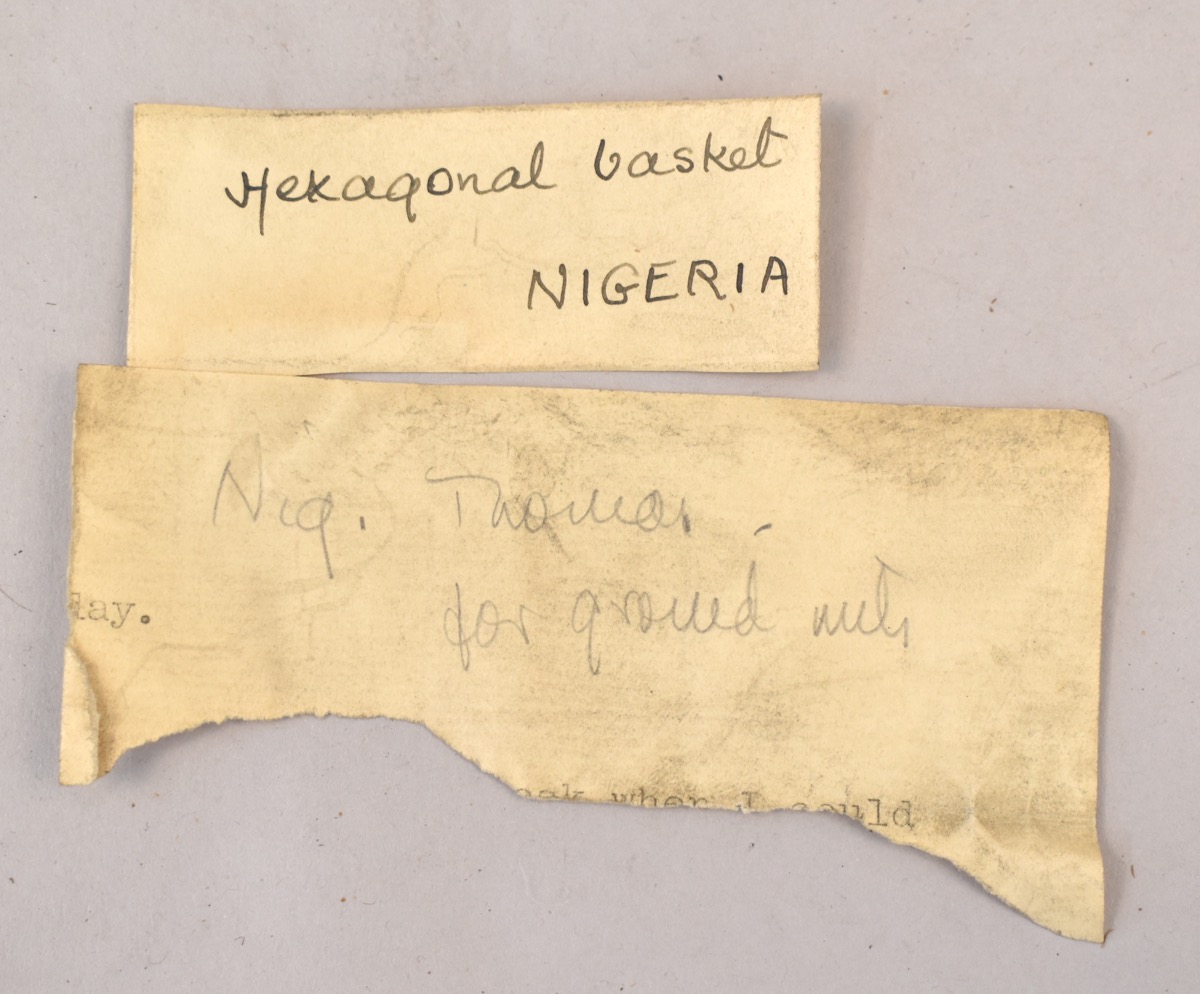 Hexagonal basket
NIGERIA
Nig. Thomas.
for ground nuts
lay.
when I could